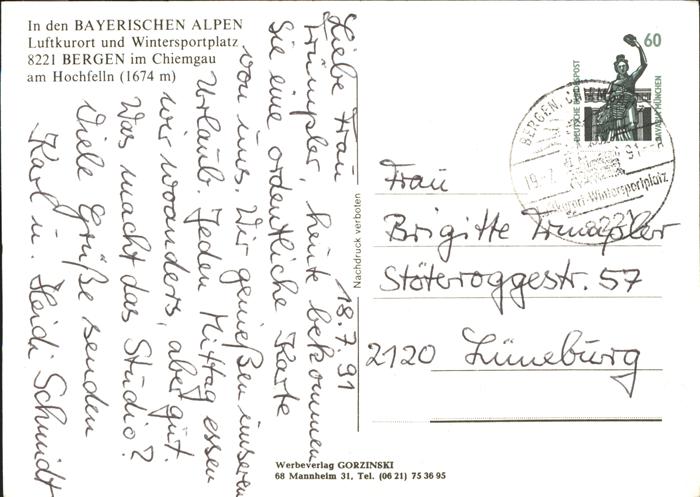 In den BAYERISCHEN ALPEN
Luftkurort und Wintersportplatz
8221 BERGEN im Chiemgau
am Hochfelln (1674 m)
18.7.91
Liebe Frau
Trümpler, heute bekommen
Sie eine ordentliche Karte
von uns. Wir genießen unseren
Urlaub. Jeden Mittag essen
wir woanders, aber gut.
Was macht das Studio?
Viele Grüße senden
Karl u. Heidi Schmidt
Nachdruck verboten
60
DEUTSCHE BUNDESPOST
BAVARIA MÜNCHEN
BERGEN, CHIEMGAU
19.-7.91-
Luftkurort-Wintersportplatz
8221
Frau
Brigitte Trümpler
Stöteroggestr. 57
2120 Lüneburg
Werbeverlag GORZINSKI
68 Mannheim 31, Tel. (06 21) 75 36 95